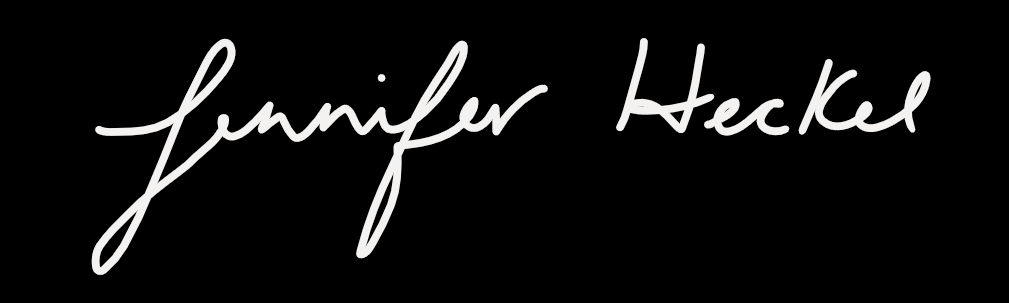 Jennifer Heckel